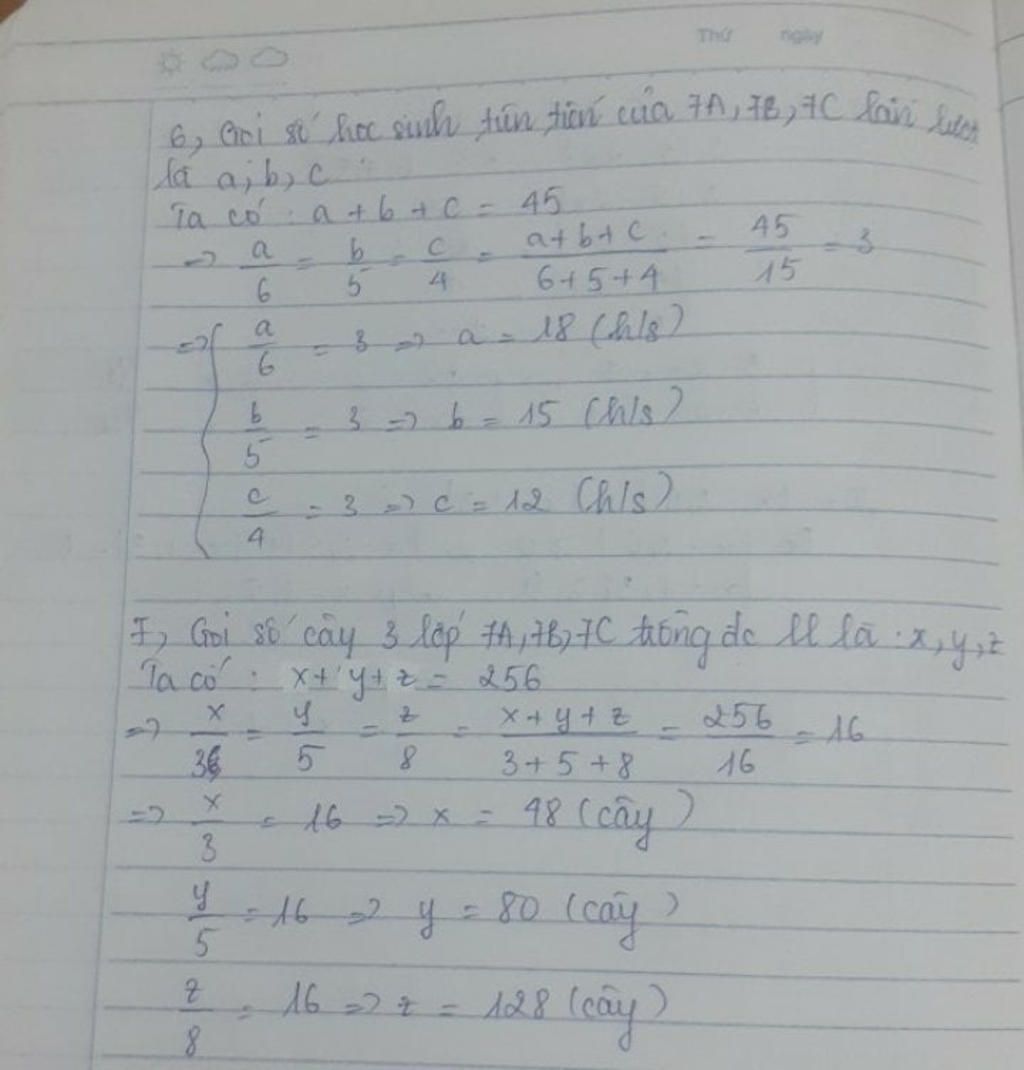 Thứ ngày
6, Gọi số học sinh tiên tiến của 7A, 7B, 7C lần lượt
là a, b, c
Ta có : a + b + c = 45
=> a/6 = b/5 = c/4 = (a+b+c)/(6+5+4) = 45/15 = 3
=> { a/6 = 3 => a = 18 (h/s)
b/5 = 3 => b = 15 (h/s)
c/4 = 3 => c = 12 (h/s)
7, Gọi số cây 3 lớp 7A, 7B, 7C trồng đc ll là : x, y, z
Ta có : x + y + z = 256
=> x/3 = y/5 = z/8 = (x+y+z)/(3+5+8) = 256/16 = 16
=> x/3 = 16 => x = 48 (cây)
y/5 = 16 => y = 80 (cây)
z/8 = 16 => z = 128 (cây)